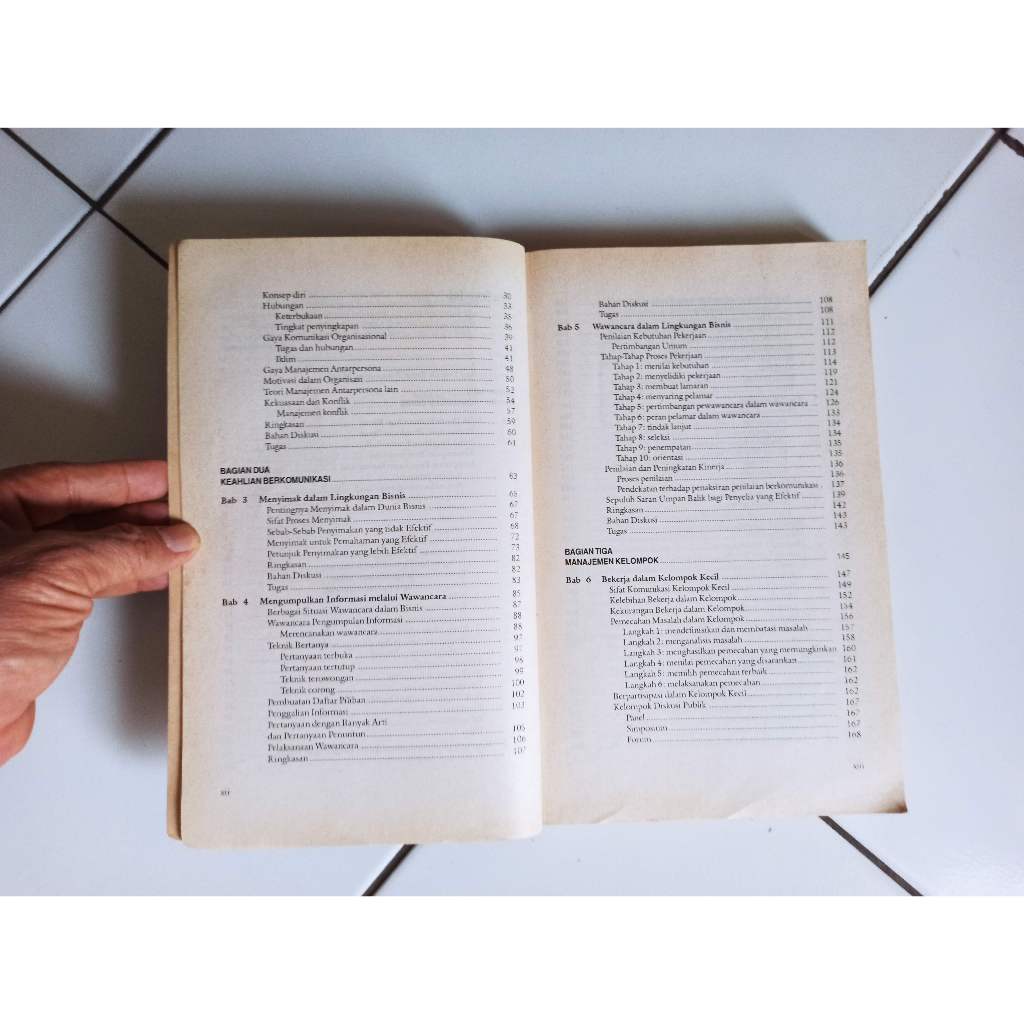 Konsep diri 30
Hubungan 33
Keterbukaan 35
Tingkat penyingkapan 36
Gaya Komunikasi Organisasional 39
Tugas dan hubungan 41
Iklim 41
Gaya Manajemen Antarpersona 48
Motivasi dalam Organisasi 50
Teori Manajemen Antarpersona lain 52
Kekuasaan dan Konflik 54
Manajemen konflik 57
Ringkasan 59
Bahan Diskusi 60
Tugas 61
BAGIAN DUA
KEAHLIAN BERKOMUNIKASI 63
Bab 3 Menyimak dalam Lingkungan Bisnis 65
Pentingnya Menyimak dalam Dunia Bisnis 67
Sifat Proses Menyimak 67
Sebab-Sebab Penyimakan yang tidak Efektif 68
Menyimak untuk Pemahaman yang Efektif 72
Petunjuk Penyimakan yang lebih Efektif 73
Ringkasan 82
Bahan Diskusi 82
Tugas 83
Bab 4 Mengumpulkan Informasi melalui Wawancara 85
Berbagai Situasi Wawancara dalam Bisnis 87
Wawancara Pengumpulan Informasi 88
Merencanakan wawancara 88
Teknik Bertanya 97
Pertanyaan terbuka 97
Pertanyaan tertutup 98
Teknik terowongan 99
Teknik corong 100
Pembuatan Daftar Pilihan 102
Penggalian Informasi 103
Pertanyaan dengan Banyak Arti
dan Pertanyaan Penuntun 105
Pelaksanaan Wawancara 106
Ringkasan 107
xii
Bahan Diskusi 108
Tugas 108
Bab 5 Wawancara dalam Lingkungan Bisnis 111
Penilaian Kebutuhan Pekerjaan 112
Pertimbangan Umum 112
Tahap-Tahap Proses Pekerjaan 113
Tahap 1: menilai kebutuhan 114
Tahap 2: menyelidiki pekerjaan 119
Tahap 3: membuat lamaran 121
Tahap 4: menyaring pelamar 124
Tahap 5: pertimbangan pewawancara dalam wawancara 126
Tahap 6: peran pelamar dalam wawancara 133
Tahap 7: tindak lanjut 134
Tahap 8: seleksi 134
Tahap 9: penempatan 135
Tahap 10: orientasi 135
Penilaian dan Peningkatan Kinerja 136
Proses penilaian 136
Pendekatan terhadap penaksiran penilaian berkomunikasi 137
Sepuluh Saran Umpan Balik bagi Penyelia yang Efektif 139
Ringkasan 142
Bahan Diskusi 143
Tugas 143
BAGIAN TIGA
MANAJEMEN KELOMPOK 145
Bab 6 Bekerja dalam Kelompok Kecil 147
Sifat Komunikasi Kelompok Kecil 149
Kelebihan Bekerja dalam Kelompok 152
Kekurangan Bekerja dalam Kelompok 154
Pemecahan Masalah dalam Kelompok 156
Langkah 1: mendefinisikan dan membatasi masalah 157
Langkah 2: menganalisis masalah 158
Langkah 3: menghasilkan pemecahan yang memungkinkan 160
Langkah 4: menilai pemecahan yang disarankan 161
Langkah 5: memilih pemecahan terbaik 162
Langkah 6: melaksanakan pemecahan 162
Berpartisipasi dalam Kelompok Kecil 162
Kelompok Diskusi Publik 167
Panel 167
Simposium 167
Forum 168
xiii